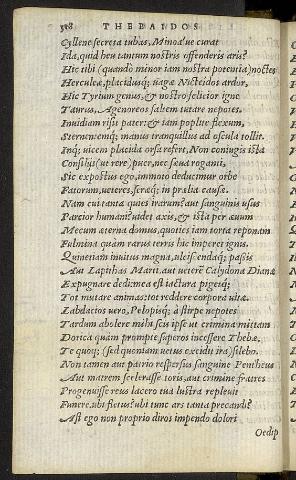 318 THEBAIDOS
Cyllene secreta tubas, Minoa've curat
Ida, quid heu tantum nostris offenderis aris?
Hic tibi (quando minor iam nostra potentia) noctes
Herculeæ, placidusq; uagæ Nicteidos ardor,
Hic Tyrium genus, & nostro felicior igne
Taurus, Agenoreos saltem tutare nepotes.
Inuidiam risit pater, & iam poplite flexum,
Sternentemq; manus tranquillus ad oscula tollit.
Inq; uicem placida orsa refert, Non coniugis ista
Consilijs (ut rere) puer, nec sæua roganti,
Sic expositus ego, immoto deducimur orbe
Fatorum, ueteres, seræq; in prælia causæ.
Nam cui tanta quies irarum? aut sanguinis usus
Parcior humani? uidet axis, & ista per æuum
Mecum æterna domus, quoties iam torta reponam
Fulmina quàm rarus terris hic imperet ignis.
Quinetiam inuitus magna, ulciscendaq; passis
Aut Lapithas Marti, aut ueterē Calydona Dianæ
Expugnare dedi: mea est iactura pigetq;
Tot mutare animas: tot reddere corpora uitæ.
Labdacios uero, Pelopisq; à stirpe nepotes
Tardum abolere mihi: scis ipse ut crimina mittam
Dorica quàm promptæ superos incessere Thebæ,
Te quoq; (sed quoniam uetus excidit ira) silebo.
Non tamen aut patrio respersus sanguine Pentheus
Aut matrem scelerasse toris, aut crimine fratres
Progenuisse reus lacero tua lustra repleuit
Funere. ubi fletus? ubi tunc ars tanta precandi?
Ast ego non proprio diros impendo dolori
Oedip